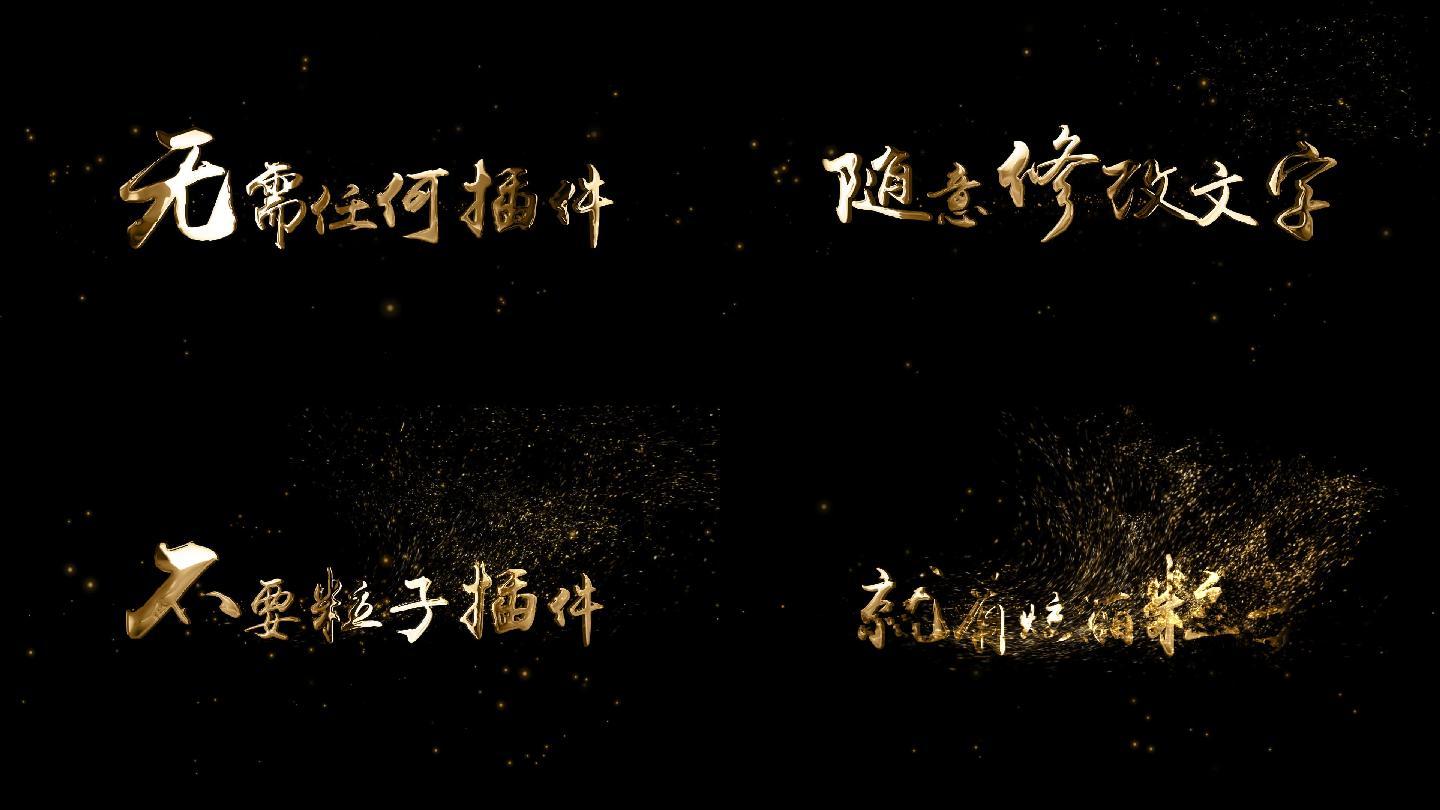 无需任何插件
随意修改文字
不要粒子插件
就有炫的粒